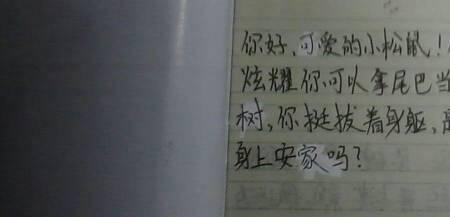 你好，可爱的小松鼠！
炫耀你可以拿尾巴当
树，你挺拔着身躯，高
身上安家吗？